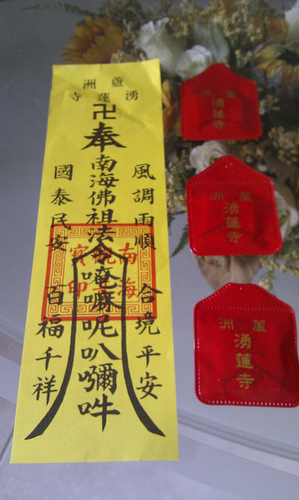 蘆洲
湧蓮寺
卍
奉南海佛祖法令唵嘛呢叭彌吽
風調雨順 合境平安
國泰民安 百福千祥
南海
寶印
蘆洲
湧蓮寺
蘆洲
湧蓮寺
蘆洲
湧蓮寺